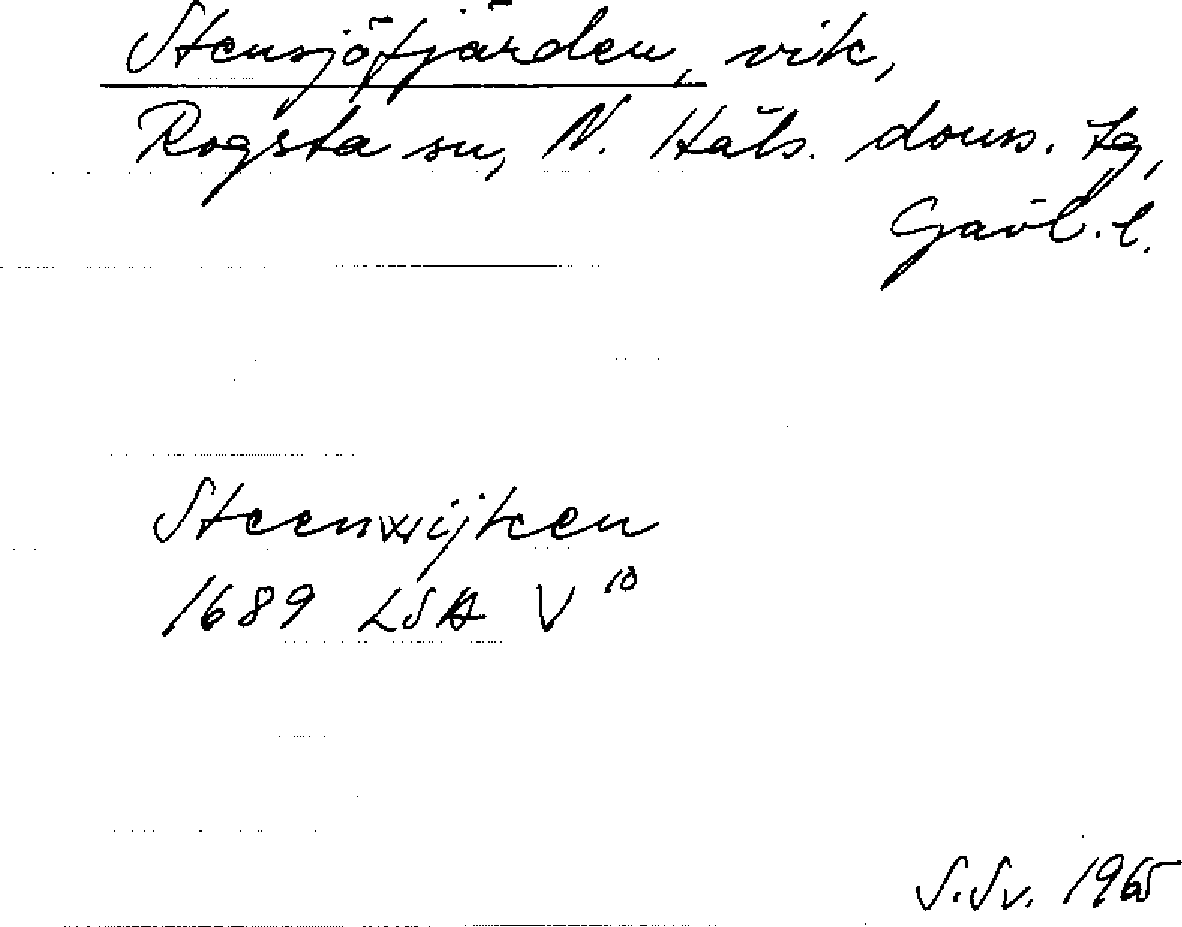 Stensjöfjärden, vik,
Rogsta sn, N. Häls. doms. tg,
Gävl. l.
Steenwijkeen
1689 LSA V 10
S.Sv. 1965